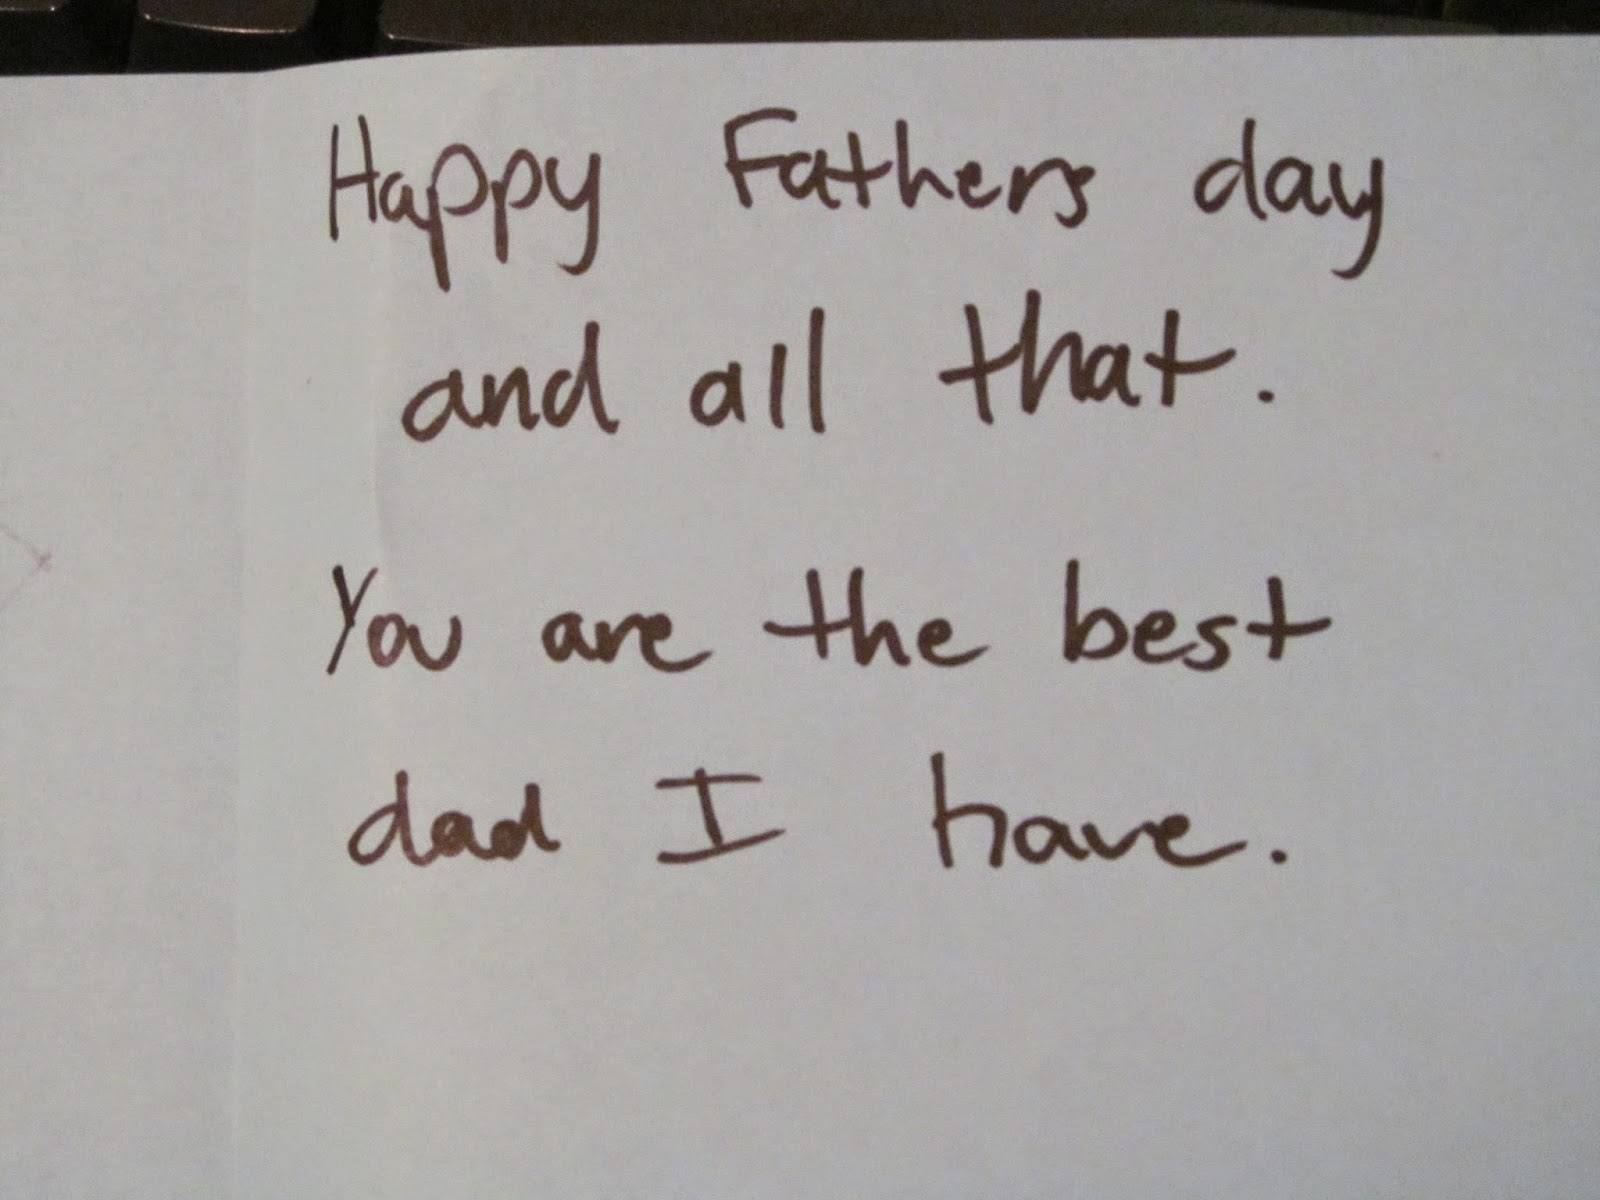 Happy Fathers day
and all that.
You are the best
dad I have.